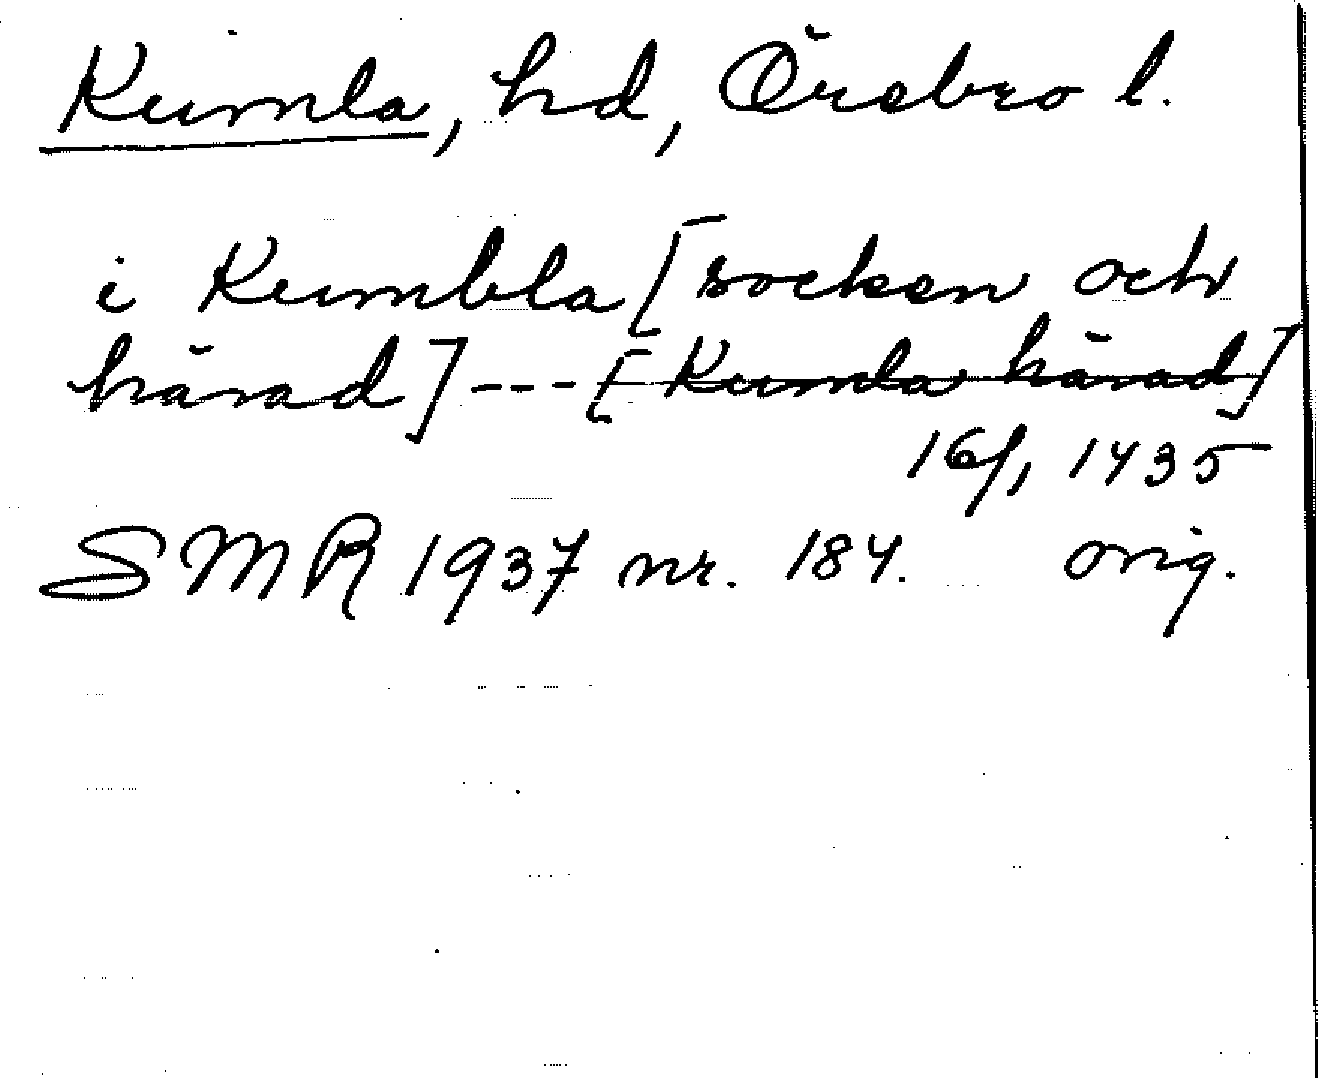 Kumla, hd, Örebro l.
i Kumbla [socken och
härad] --- [Kumla härad]
16/1 1435
SMR 1937 nr. 184. orig.